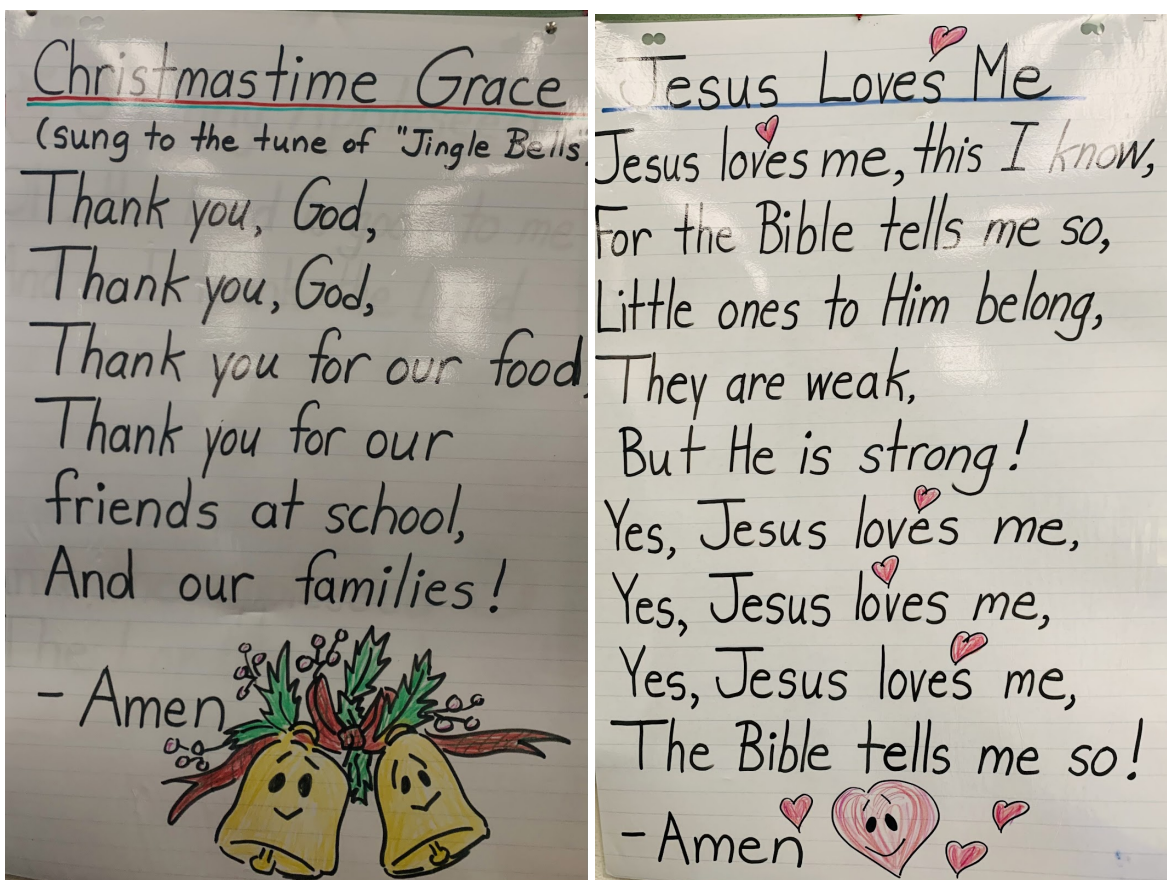 Christmastime Grace
(sung to the tune of "Jingle Bells"
Thank you, God,
Thank you, God,
Thank you for our food,
Thank you for our
friends at school,
And our families!
- Amen
Jesus Loves Me
Jesus loves me, this I know,
For the Bible tells me so,
Little ones to Him belong,
They are weak,
But He is strong!
Yes, Jesus loves me,
Yes, Jesus loves me,
Yes, Jesus loves me,
The Bible tells me so!
- Amen